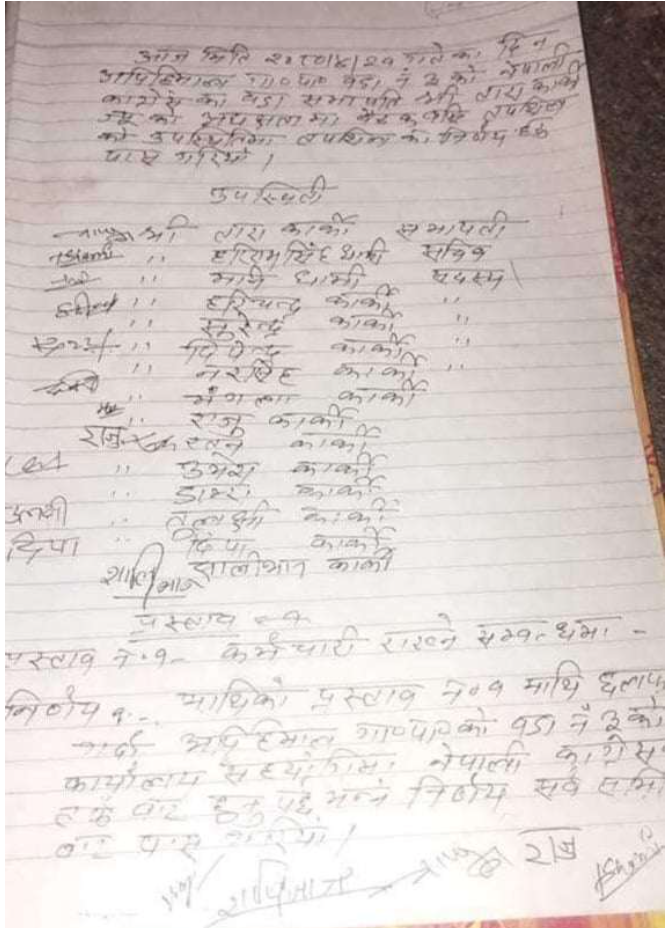 आज मिति २०८०/४/२१ गते का दिन
अपिहिमाल गा०पा० वडा नं ३ को नेपाली
काग्रेस का वडा सभापति श्री तारा कार्की
ज्यू को अध्यक्षतामा बैठक बसि तपशिल
को उपस्थितिमा तपशिल का निर्णय हरु
पास गरियो ।
उपस्थिती
श्री तारा कार्की सभापती
,, सिंह धामी सचिव
,, धामी सदस्य
,, हरिचन्द्र कार्की ,,
,, सुरेन्द्र कार्की ,,
,, दिपेन्द्र कार्की ,,
,, नरसिंह कार्की
,, मंगला कार्की
,, राजु कार्की
राजु रतने कार्की
,, उमेश कार्की
,, कार्की
तुलसी ,, तुलसी कार्की
दिपा ,, दिपा कार्की
शालीभान कार्की
प्रस्ताव - १
प्रस्ताव नं.१- कर्मचारी राख्ने सम्बन्धमा -
निर्णय १.- माथिको प्रस्ताव नं०१ माथि छलफल
गर्दा अपिहिमाल गा०पा०को वडा नं ३ को
कार्यालय सहयोगीमा नेपाली काग्रेस
तर्फ बाट हुनु पर्छ भन्ने निर्णय सर्व सम्मती
बाट पास गरियो ।
राजु